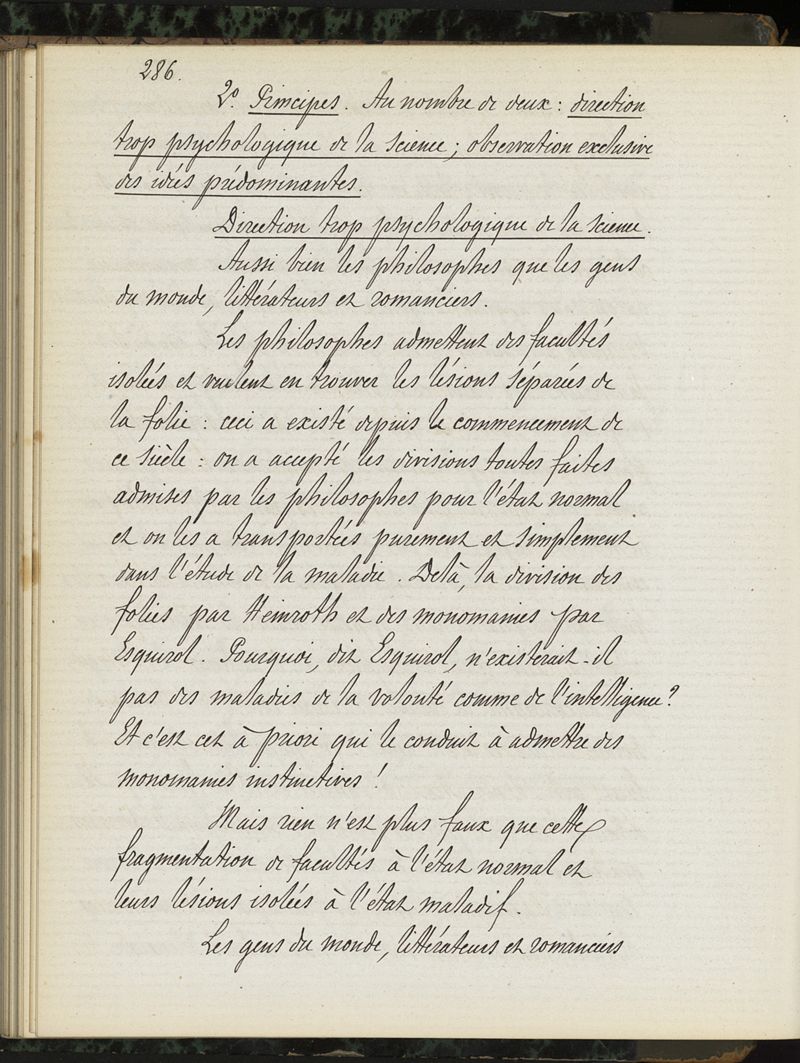 286.
2º. Principes. Au nombre de deux : direction
trop psychologique de la science ; observation exclusive
des idées prédominantes.
Direction trop psychologique de la science.
Aussi bien les philosophes que les gens
du monde, littérateurs et romanciers.
Les philosophes admettent des facultés
isolées et veulent en trouver les lésions séparées de
la folie : ceci a existé depuis le commencement de
ce siècle : on a accepté les divisions toutes faites
admises par les philosophes pour l'état normal
et on les a transportées purement et simplement
dans l'étude de la maladie. Delà, la division des
folies par Heinroth et des monomanies par
Esquirol. Pourquoi, dit Esquirol, n'existerait-il
pas des maladies de la volonté comme de l'intelligence ?
Et c'est cet à priori qui le conduit à admettre des
monomanies instinctives !
Mais rien n'est plus faux que cette
fragmentation de facultés à l'état normal et
leurs lésions isolées à l'état maladif.
Les gens du monde, littérateurs et romanciers